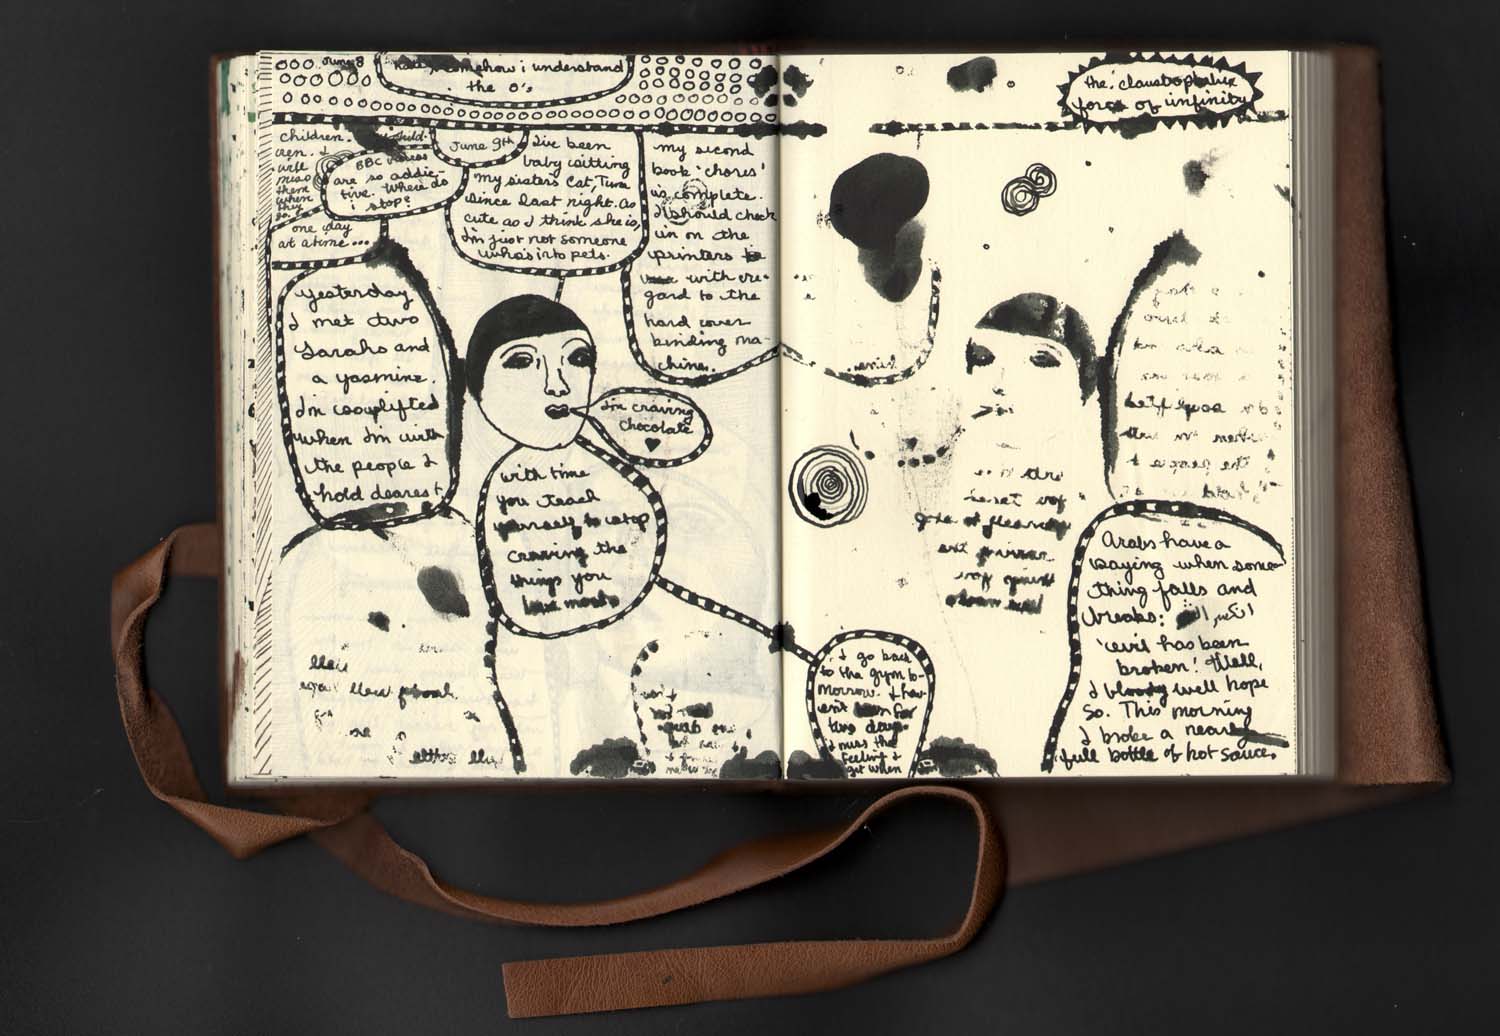 June 8
somehow i understand
the 0's
children.
child.
them
when
they
go.
BBC
are so addic-
tive. Where do
i stop?
one day
at a time...
June 9th
I've been
baby citting
my sisters Cat, Tuna
since last night. As
cute as I think she is,
I'm just not someone
who's into pets.
my second
book 'chores'
is complete.
I should check
in on the
printers
with re-
gard to the
hard cover
binding ma-
chine.
yesterday
I met two
Sarahs and
a yasmine.
I'm
when I'm with
the people I
hold dearest
I'm craving
chocolate
with time
you teach
yourself to stop
craving the
things you
love most
the 'claustophobic
force of infinity'
I go back
to the gym to-
morrow. I hav-
ent been for
two days.
I miss the
feeling I
get when
Arabs have a
saying when some-
thing falls and
breaks: انكسر الشر
'evil has been
broken'. Well,
I bloody well hope
so. This morning
I broke a nearly
full bottle of hot sauce.